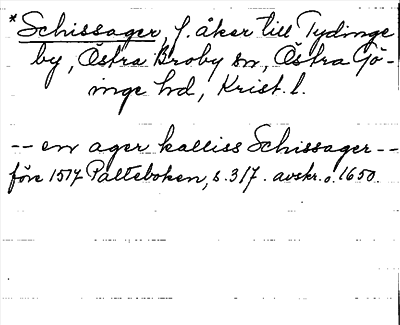 *Schissager, f. åker till Tydinge
by, Östra Broby sn, Östra Gö-
inge hd, Krist. l.
-- en ager kalliss Schissager --
före 1517 Palteboken, s. 317. avskr. o. 1650.